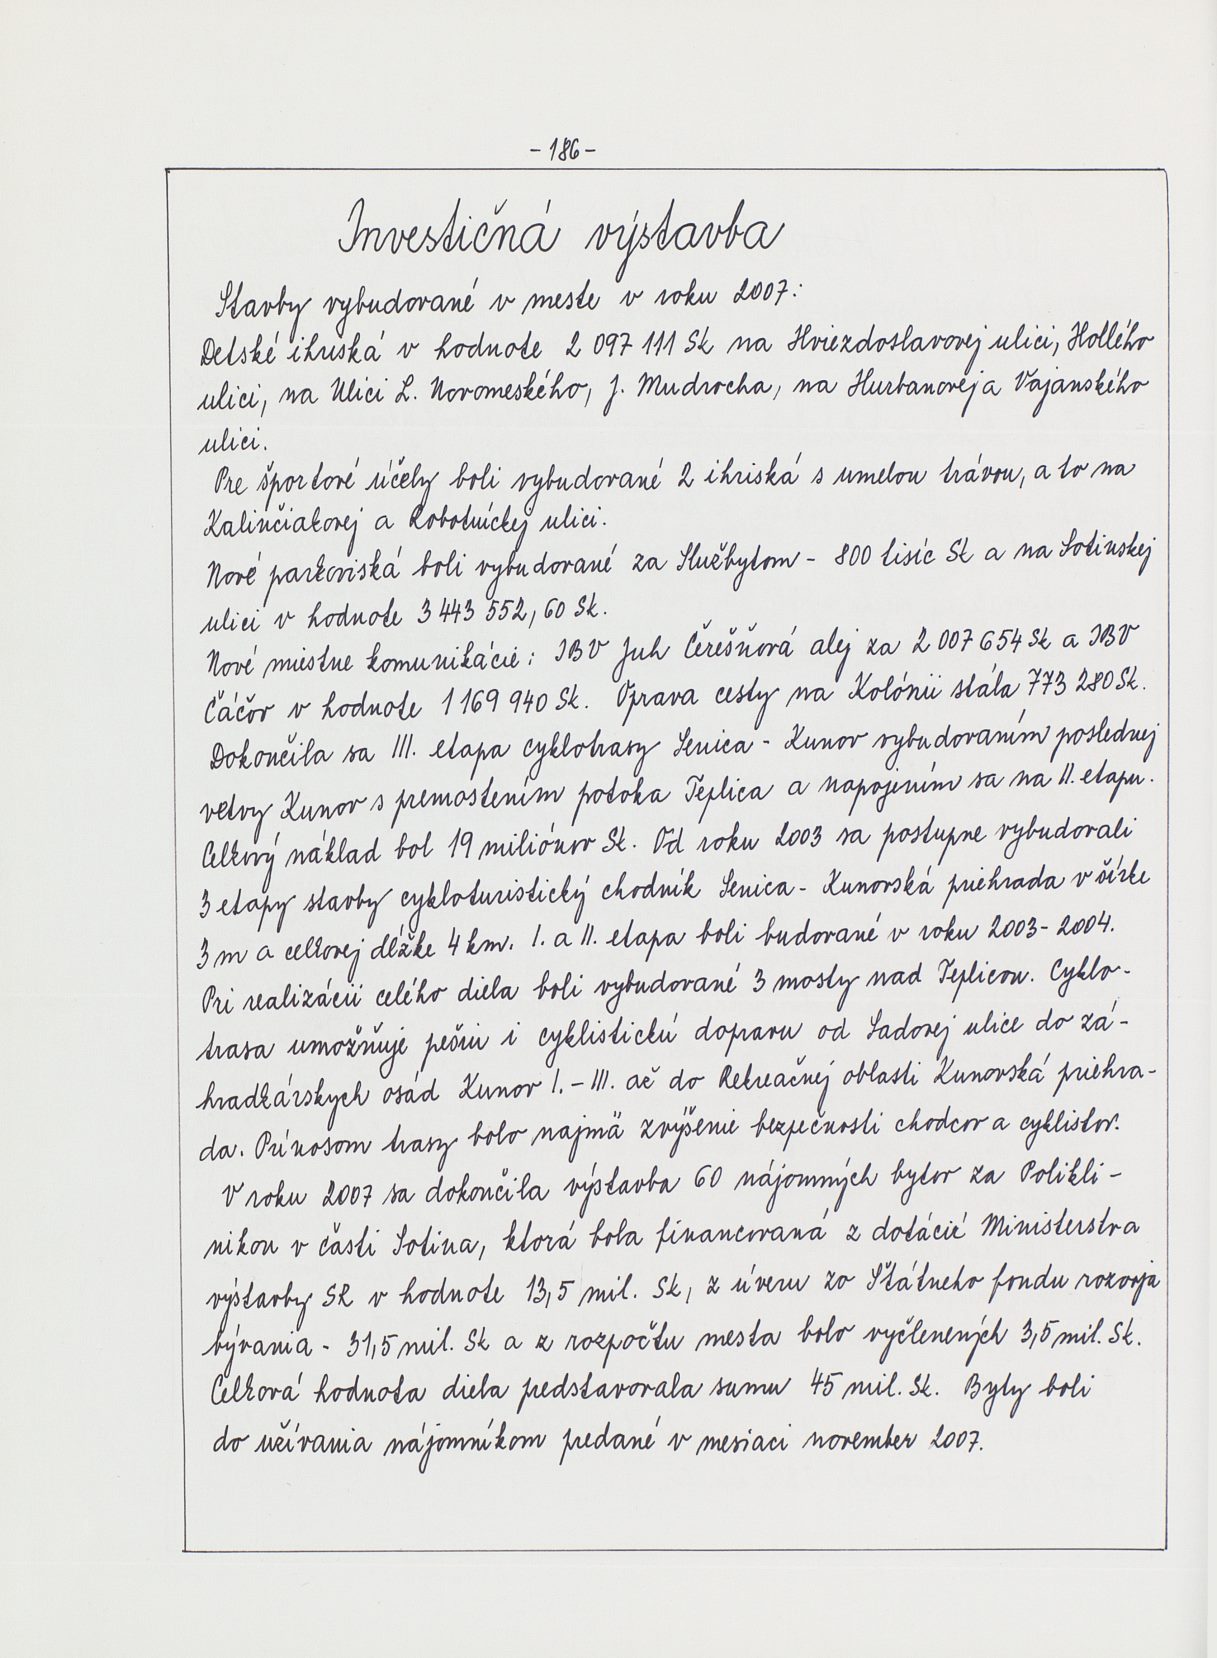 - 186 -
Investičná výstavba
Stavby vybudované v meste v roku 2007:
Detské ihriská v hodnote 2 097 111 Sk na Hviezdoslavovej ulici, Hollého
ulici, na Ulici L. Novomeského, J. Mudrocha, na Hurbanovej a Vajanského
ulici.
Pre športové účely boli vybudované 2 ihriská s umelou trávou, a to na
Kalinčiakovej a Robotníckej ulici.
Nové parkoviská boli vybudované za Službytom - 800 tisíc Sk a na Sotinskej
ulici v hodnote 3 443 552,60 Sk.
Nové miestne komunikácie: IBV Juh Čerešňová alej za 2 007 654 Sk a IBV
Čáčov v hodnote 1 169 940 Sk. Oprava cesty na Kolónii stála 773 280 Sk.
Dokončila sa III. etapa cyklotrasy Senica - Kunov vybudovaním poslednej
vetvy Kunov s premostením potoka Teplica a napojením sa na II. etapu.
Celkový náklad bol 19 miliónov Sk. Od roku 2003 sa postupne vybudovali
3 etapy stavby cykloturistický chodník Senica - Kunovská priehrada v šírke
3 m a celkovej dĺžke 4 km. I. a II. etapa boli budované v roku 2003 - 2004.
Pri realizácii celého diela boli vybudované 3 mosty nad Teplicou. Cyklo-
trasa umožňuje pešiu i cyklistickú dopravu od Sadovej ulice do zá-
hradkárskych osád Kunov I. - III. ač do Rekreačnej oblasti Kunovská priehra-
da. Prínosom trasy bolo najmä zvýšenie bezpečnosti chodcov a cyklistov.
V roku 2007 sa dokončila výstavba 60 nájomných bytov za Polikli-
nikou v časti Sotina, ktorá bola financovaná z dotácie Ministerstva
výstavby SR v hodnote 13,5 mil. Sk, z úveru zo Štátneho fondu rozvoja
bývania - 31,5 mil. Sk a z rozpočtu mesta bolo vyčlenených 3,5 mil. Sk.
Celková hodnota diela predstavovala sumu 45 mil. Sk. Byty boli
do užívania nájomníkom predané v mesiaci november 2007.